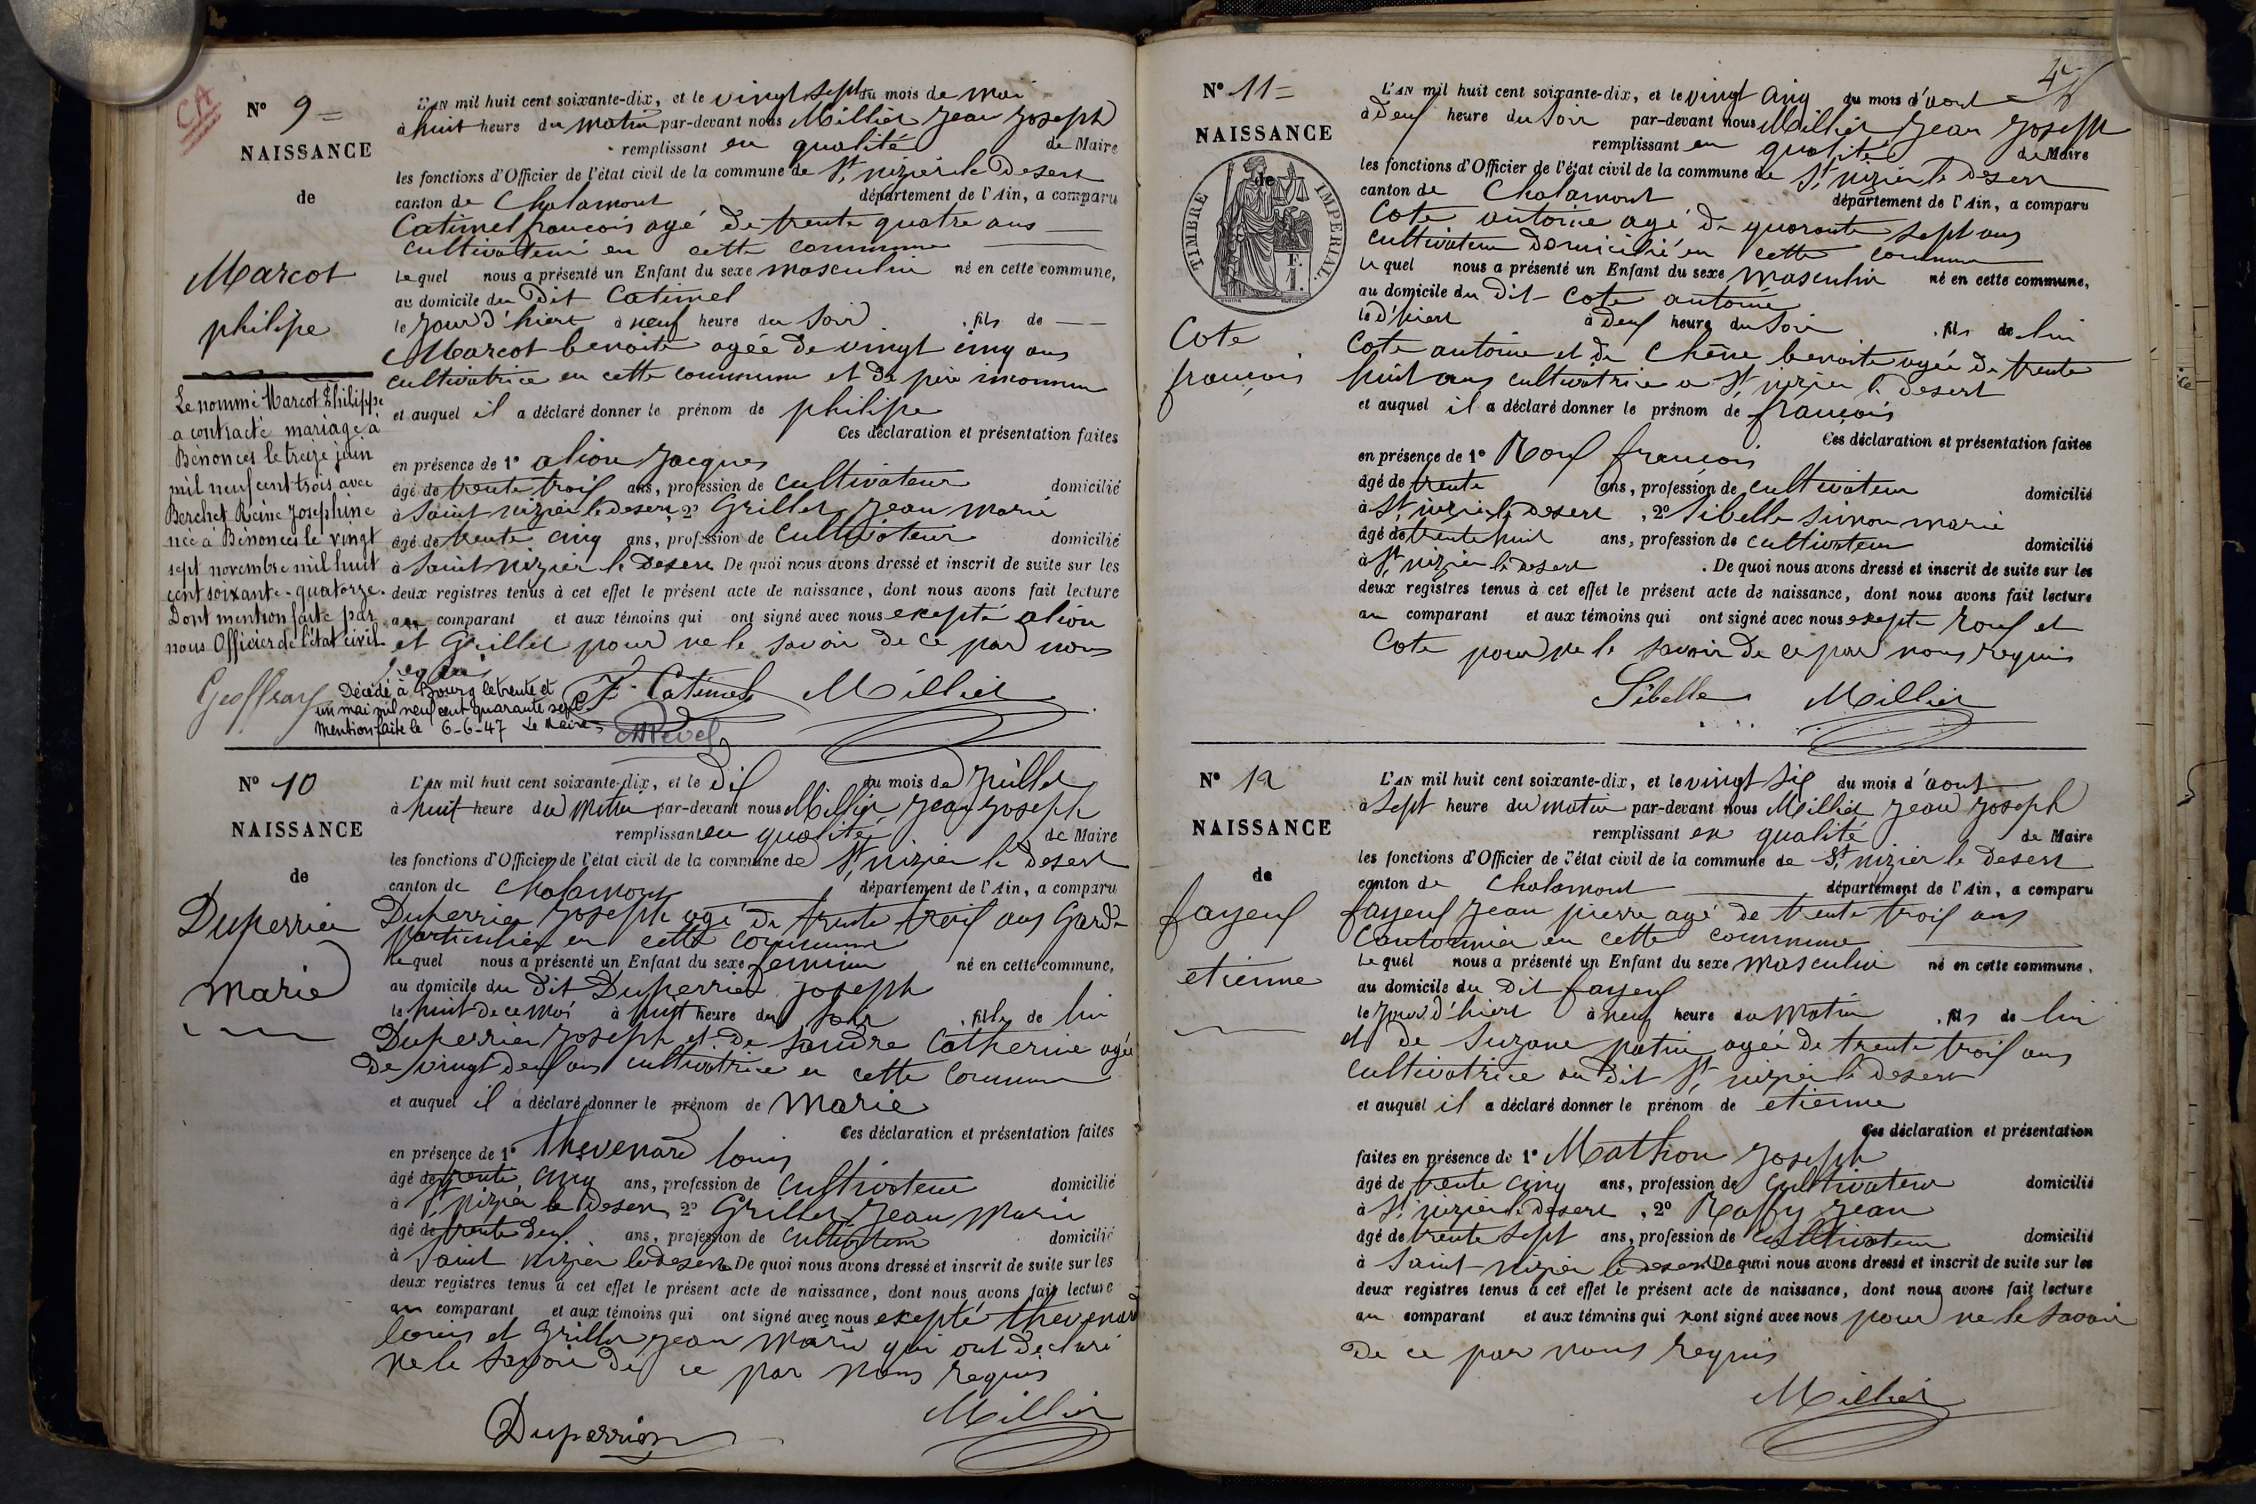 CA
N° 9 =
NAISSANCE
de
Marcot
philipe
Le nommé Marcot Philippe
a contracté mariage à
Bénonces le treize juin
mil neuf cent trois avec
Berchet Reine Josephine
née à Bénonces le vingt
sept novembre mil huit
cent soixante-quatorze.
Dont mention faite par
nous Officier de l'état civil
Geoffray
Décédé à Bourg le trente et
un mai mil neuf cent quarante sept
Mention faite le 6-6-47 Le Maire
L'AN mil huit cent soixante-dix, et le vingt sept du mois de mai
à huit heure du matin par-devant nous Millier Jean Joseph
remplissant en qualité de Maire
les fonctions d'Officier de l'état civil de la commune de St nizier le Desert
canton de Chalamont département de l'Ain, a comparu
Catimel francois agé de trente quatre ans
cultivateur en cette commune
Lequel nous a présenté un Enfant du sexe masculin né en cette commune,
au domicile du dit Catimel
le jour d'hiert à neuf heure du soir . fils de
Marcot benoite agée de vingt cinq ans
cultivatrice en cette commune et de père inconnu
et auquel il a déclaré donner le prénom de philipe
Ces déclaration et présentation faites
en présence de 1° alion Jacques
âgé de trente trois ans, profession de cultivateur domicilié
à Saint nizier le desert, 2° Grillet Jean marie
âgé de trente cinq ans, profession de cultivateur domicilié
à Saint nizier le Desert De quoi nous avons dressé et inscrit de suite sur les
deux registres tenus à cet effet le présent acte de naissance, dont nous avons fait lecture
au comparant et aux témoins qui ont signé avec nous excepté alion
et Grillet pour ne le savoir de ce par nous
requis
F. Catimel Millier
N° 10
NAISSANCE
de
Duperrier
marie
L'AN mil huit cent soixante-dix, et le dix du mois de juillet
à huit heure du matin par-devant nous Millier Jean Joseph
remplissant en qualité de Maire
les fonctions d'Officier de l'état civil de la commune de St nizier le desert
canton de Chalamont département de l'Ain, a comparu
Duperrier Joseph agé de trente trois ans Garde
particulier en cette commune
Lequel nous a présenté un Enfant du sexe feminin né en cette commune,
au domicile du dit Duperrier joseph
le huit de ce mois à huit heure du soir . fille de lui
Duperrier Joseph et de Catherine agée
de vingt deux ans cultivatrice en cette commune
et auquel il a déclaré donner le prénom de Marie
Ces déclaration et présentation faites
en présence de 1° thevenard louis
âgé de trente cinq ans, profession de cultivateur domicilié
à St nizier le Desert, 2° Grillet Jean Marie
âgé de trente deux ans, profession de cultivateur domicilié
à Saint nizier le desert De quoi nous avons dressé et inscrit de suite sur les
deux registres tenus à cet effet le présent acte de naissance, dont nous avons fait lecture
au comparant et aux témoins qui ont signé avec nous excepté thevenard
louis et Grillet Jean Marie qui ont declaré
ne le savoir de ce par nous requis
Duperrier Millier
4
N° 11 =
NAISSANCE
de
TIMBRE IMPERIAL.
Cote
françois
L'AN mil huit cent soixante-dix, et le vingt cinq du mois d'aout
à deux heure du soir par-devant nous Millier Jean Joseph
remplissant en qualité de Maire
les fonctions d'Officier de l'état civil de la commune de St nizier le Desert
canton de Chalamont département de l'Ain, a comparu
Cote antoine agé de quarante sept ans
cultivateur domicilié en cette commune
Lequel nous a présenté un Enfant du sexe masculin né en cette commune,
au domicile du dit Cote antoine
le d'hiert à deux heure du soir . fils de lui
Cote antoine et de Chêne benoite agée de trente
huit ans cultivatrice a St nizier le desert
et auquel il a déclaré donner le prénom de françois
Ces déclaration et présentation faites
en présence de 1° Roux francois
âgé de trente ans, profession de cultivateur domicilié
à St nizier le desert, 2° Sibelle Simon marie
âgé de trente huit ans, profession de cultivateur domicilié
à St nizier le desert . De quoi nous avons dressé et inscrit de suite sur les
deux registres tenus à cet effet le présent acte de naissance, dont nous avons fait lecture
au comparant et aux témoins qui ont signé avec nous exepte roux et
Cote pour ne le savoir de ce par nous requis
Sibelle Millier
N° 12
NAISSANCE
de
fayeux
etienne
L'AN mil huit cent soixante-dix, et le vingt six du mois d'aout
à sept heure du matin par-devant nous Millier Jean Joseph
remplissant en qualité de Maire
les fonctions d'Officier de l'état civil de la commune de St nizier le Desert
canton de Chalamont département de l'Ain, a comparu
fayeux Jean pierre agé de trente trois ans
Cantonnier en cette commune
Lequel nous a présenté un Enfant du sexe masculin né en cette commune.
au domicile du dit fayeux
le jour d'hiert à neuf heure du matin . fils de lui
et de Suzane patin agée de trente trois ans
cultivatrice au dit St nizier le desert
et auquel il a déclaré donner le prénom de etienne
Ces déclaration et présentation
faites en présence de 1° Mathon Joseph
âgé de trente cinq ans, profession de cultivateur domicilié
à St nizier le desert, 2° Raffy Jean
âgé de trente sept ans, profession de cultivateur domicilié
à Saint nizier le desert De quoi nous avons dressé et inscrit de suite sur les
deux registres tenus à cet effet le présent acte de naissance, dont nous avons fait lecture
au comparant et aux témoins qui nont signé avec nous pour ne le savoir
de ce par nous requis
Millier